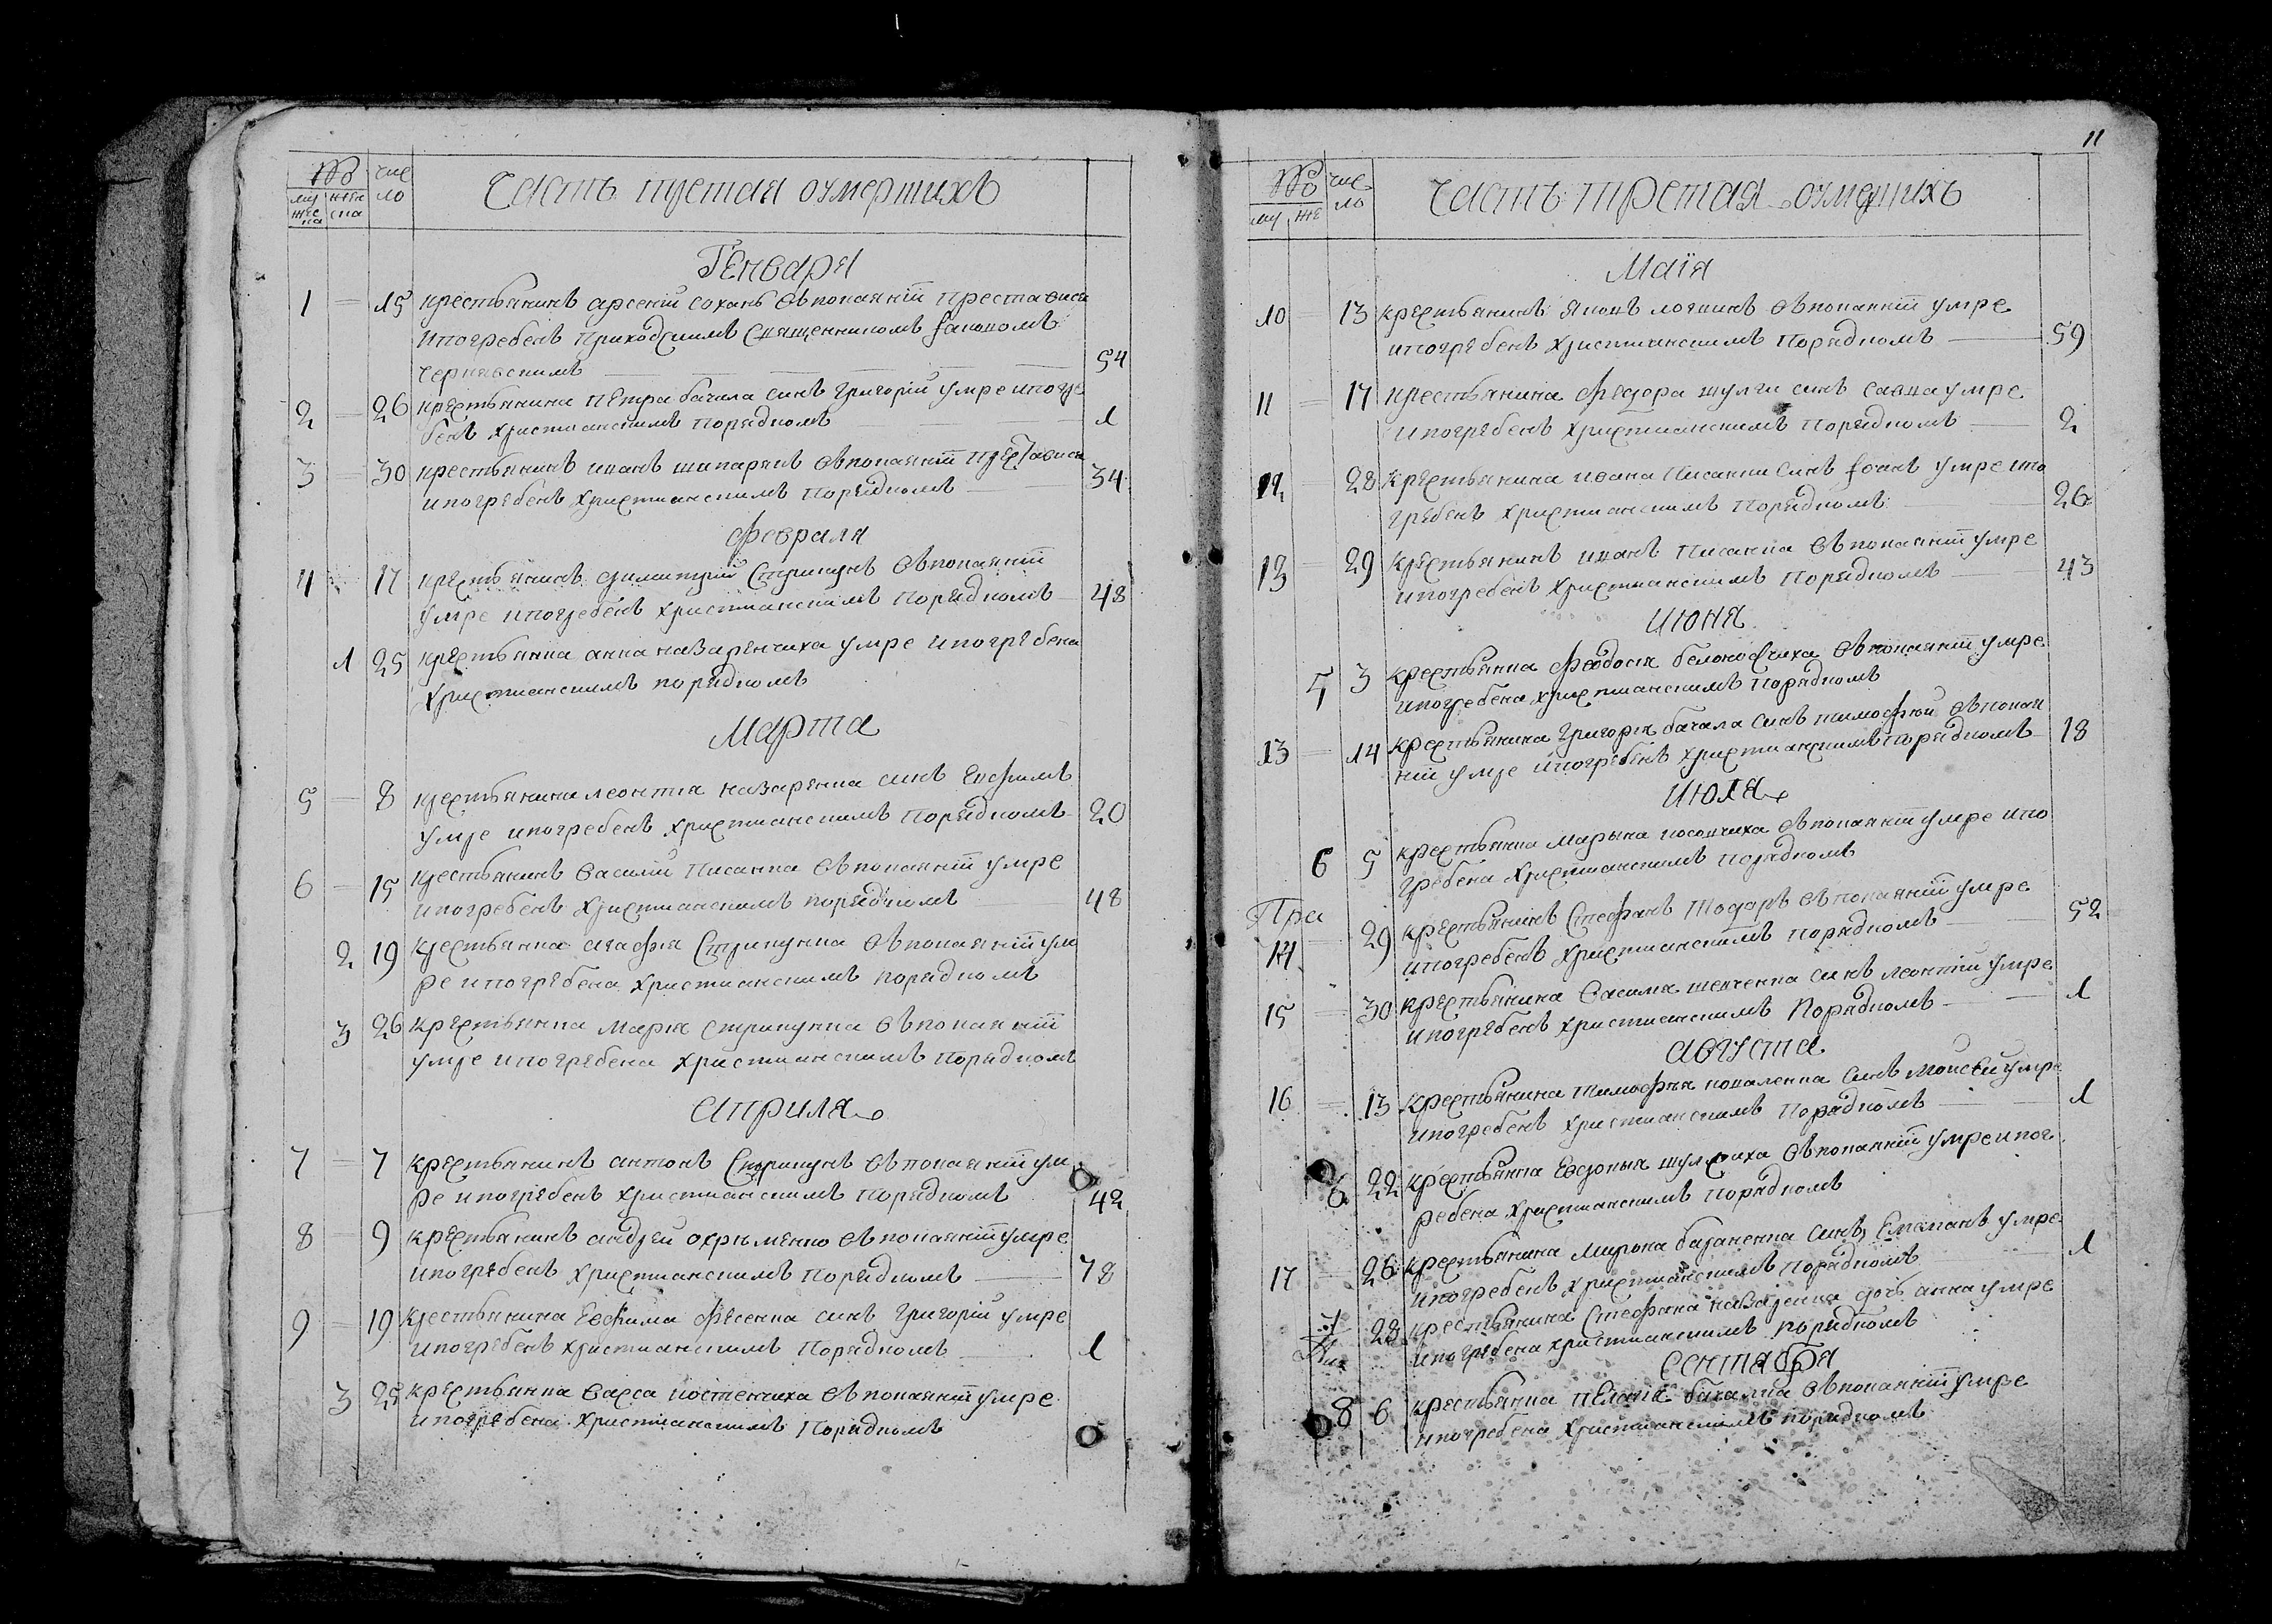 № чис
муже жен ло Часть третая оумершихъ
ска ска
Генваря
1 — 15 крестьянинъ арсений сохань въ покаянїи преставися
и погребенъ приходскимъ священникомъ
чернявскимъ 54
2 — 26 крестьянина петра бачала синъ григорій умре и погре
бенъ христианскимъ порядкомъ 1
3 — 30 крестьянинъ иванъ шкпарякъ въ покаянїи преставися
и погребенъ христианскимъ порядкомъ 34
февраля
4 17 крестьянинъ димитрий стрикунъ въ покаянїи
умре и погребенъ христианскимъ порядкомъ 48
1 25 крестьянка анна назаренчиха умре и погребена
христианскимъ порядкомъ
Марта
5 — 8 крестьянина леонтия назаренка синъ Евфимъ
умре и погребенъ христианскимъ порядкомъ 20
6 — 15 крестьянинъ василий писанка въ покаянїи умре
и погребенъ христианскимъ порядкомъ 48
2 19 крестьянка агафия стрикунка въ покаянїи ум
ре и погребена христианскимъ порядкомъ
3 26 крестьянка мария стрикунка въ покаянїи
умре и погребена христианскимъ порядкомъ
априля
7 — 7 крестьянинъ антонъ стрикунъ въ покаянїи ум
ре и погребенъ христианскимъ порядкомъ 42
8 — 9 крестьянинъ андрей охрѣменко въ покаянїи умре
и погребенъ христианскимъ порядкомъ 78
9 — 19 крестьянина Евфима фесенка синъ григорий умре
и погребенъ христианскимъ порядкомъ 1
3 25 крестьянка васса костенчиха въ покаянїи умре
и погребена христианскимъ порядкомъ
11
№ чис
му же ло Часть третая оумершихъ
Маїя
10 — 13 крестьянинъ яковъ логвинъ въ покаянїи умре
и погребенъ христианскимъ порядкомъ 59
11 — 17 крестьянина федора шулги синъ савка умре
и погребенъ христианскимъ порядкомъ 2
12 28 крестьянина ивана писанки синъ умре и по
гребенъ христианскимъ порядкомъ 26
13 — 29 крестьянинъ иванъ писанка въ покаянїи умре
и погребенъ христианскимъ порядкомъ 43
июня
5 3 крестьянка феодосия въ покаянїи умре
и погребена христианскимъ порядкомъ
13 — 14 крестьянина григория бачала синъ тимофей въ покая
нїи умре и погребенъ христианскимъ порядкомъ 18
июля
6 5 крестьянка марьяна въ покаянїи умре и по
гребена христианскимъ порядкомъ
14 — 29 крестьянинъ стефанъ въ покаянїи умре
и погребенъ христианскимъ порядкомъ 52
15 — 30 крестьянина василия шевченка синъ леонтий умре
и погребенъ христианскимъ порядкомъ 1
августа
16 — 13 крестьянина тимофея коваленка синъ моисей умре
и погребенъ христианскимъ порядкомъ 1
6 22 крестьянка Евдокия въ покаянїи умре и пог
ребена христианскимъ порядкомъ
17 26 крестьянина мирона синъ умре
и погребенъ христианскимъ порядкомъ 1
7 28 крестьянина стефана назаренка дочь анна умре
и погребена христианскимъ порядкомъ
сентября
8 6 крестьянка бачалка въ покаянїи умре
и погребена христианскимъ порядкомъ